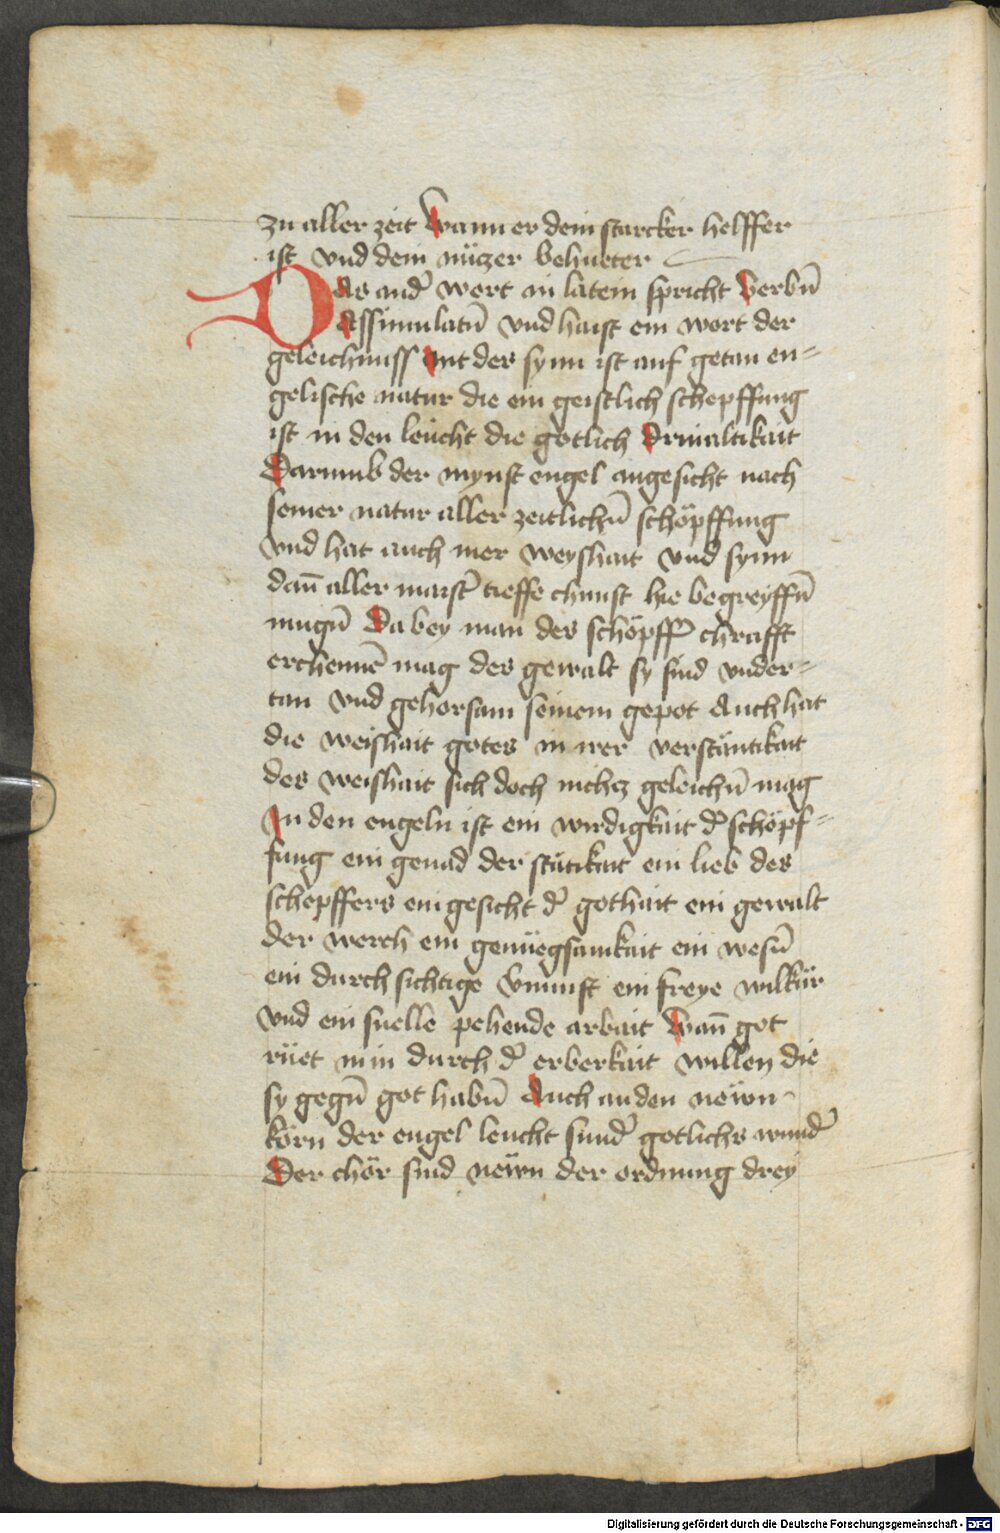 zu aller zeit Wann er dein starcker helffer
ist vnd dein nüczer behueter
Das and̄ wort in latein spricht Verbū
Assimulatū vnd haist ein wort der
geleichnuss mit des synn ist auf getan en=
gelische natur die ein geistlich schepffung
ist in den leücht die gotlich Driualtikait
Darumb der mynst engel angesicht nach
seiner natur aller zeitlichn̄ schöpffung
vnd hat auch mer weyshait vnd synn
dan̄ aller maist̄ tieffe chunst hie begreyffn̄
mugn̄ Da bey man des schöpff̄ chrafft
erchennē mag des gewalt sy sind vnder=
tan vnd gehorsam seinem gepot Auch hat
die weishait gotes in irer verstäntikait
des weishait sich doch nichcz geleichn̄ mag
In den engeln ist ein wirdigkait d̄ schöpf=
fung ein genad der stätikait ein lieb des
schepffers ein gesicht d̄ gothait ein gewalt
der werch ein genüegsamkait ein wesn̄
ein durchsichtige Vnunft ein freye wilkür
vnd ein snelle pehende arbait Wan̄ got
rüet in in durch d̄ erberkait willen die
sy gegn̄ got habn̄ Auch an den newn
körn der engel leucht sund̄ gotlichs wund̄
Der chör sind newn der ordnung drey
Digitalisierung gefördert durch die Deutsche Forschungsgemeinschaft - DFG